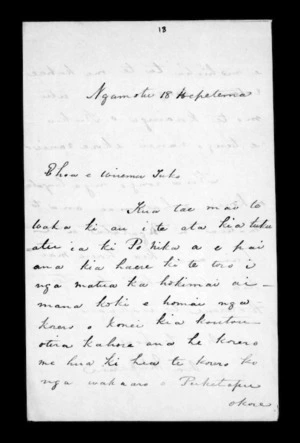 18
Ngamotu 18 Hepetema
E hoa e
Kua tae mai to
waka ki au i te ata kia tuku
atu ia ki Ponika a e pai
ana kia haere ki te toro i
nga matua ka hokimai ai
mana koki e homai nga
korero o konei kia koutou
otira kahore ana he korero
me hua ki hea te korero ko
nga wakaaro o Puketapu
okore